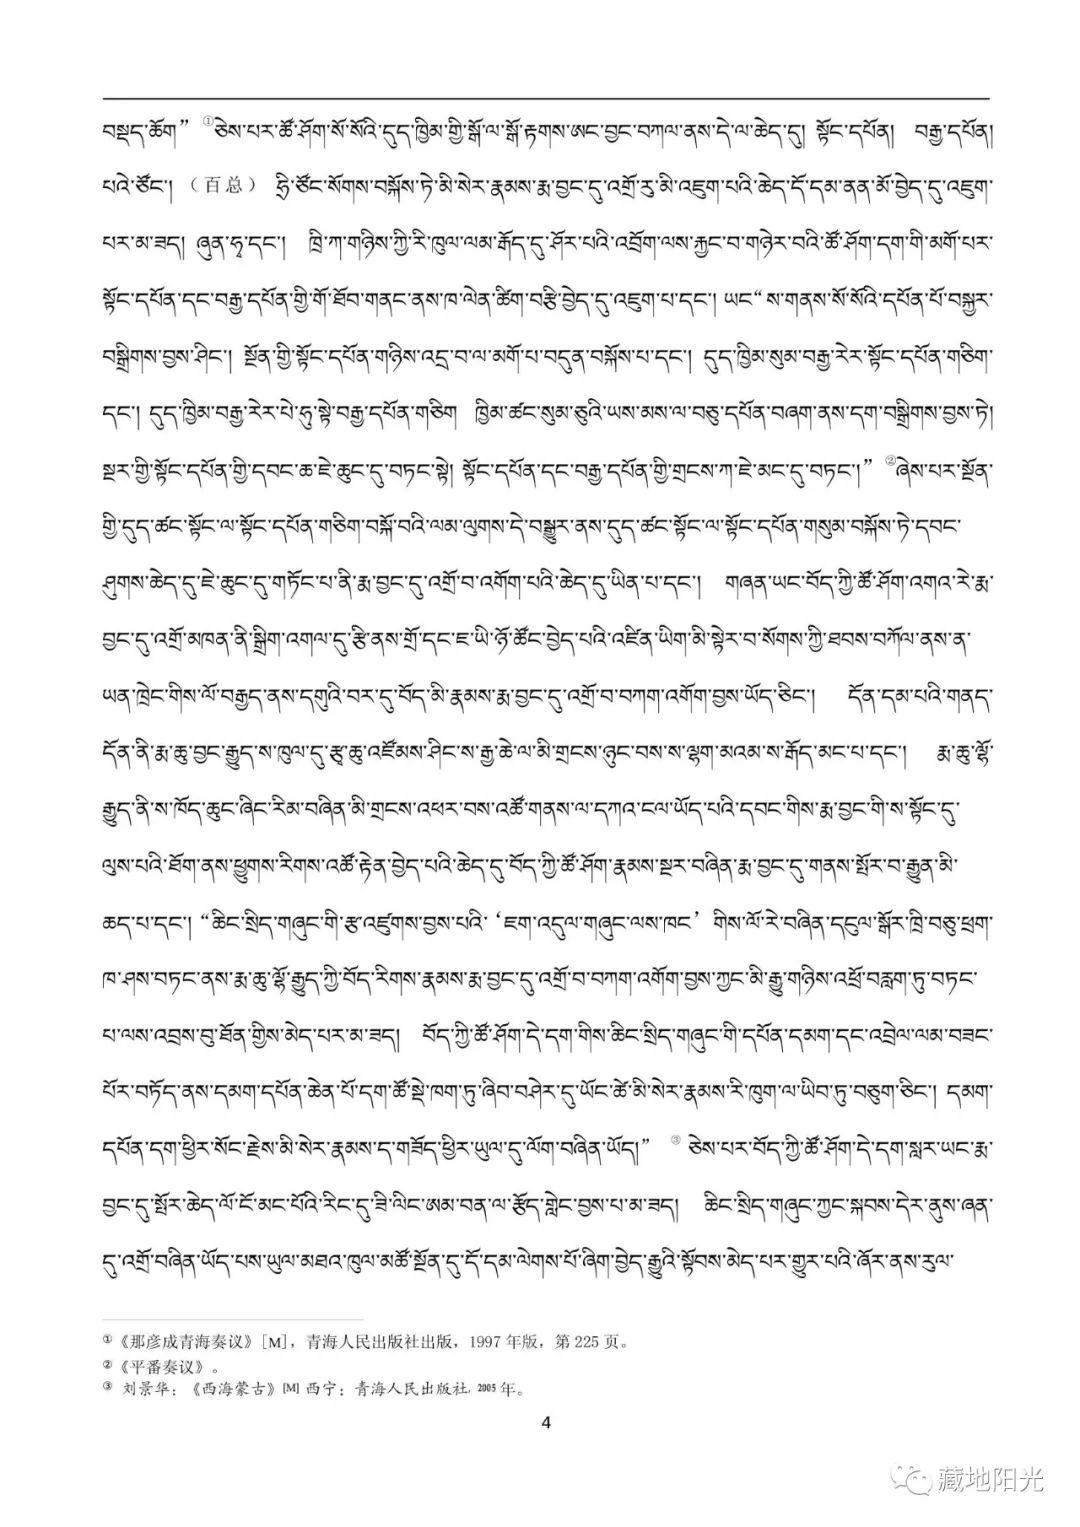 བསྡད་ཆོག” ①ཅེས་པར་ཚོ་ཤོག་སོ་སོའི་དུད་ཁྱིམ་གྱི་སྒོ་ལ་སྒོ་རྟགས་ཨང་བྱང་བཀལ་ནས་དེ་ལ་ཆེད་དུ། སྟོང་དཔོན། བརྒྱ་དཔོན།
པའེ་ཙོང་། （百总） ཧྲི་ཙོང་སོགས་བསྐོས་ཏེ་མི་སེར་རྣམས་རྨ་བྱང་དུ་འགྲོ་རུ་མི་འཇུག་པའི་ཆེད་དོ་དམ་ནན་མོ་བྱེད་དུ་འཇུག་
པར་མ་ཟད། ཞུན་ཧྭ་དང་། ཁྲི་ཀ་གཉིས་ཀྱི་རི་ཁུལ་ལམ་རྒོད་དུ་ཤོར་པའི་འབྲོག་ལས་རྐྱང་བ་གཉེར་བའི་ཚོ་ཤོག་དག་གི་མགོ་པར་
སྟོང་དཔོན་དང་བརྒྱ་དཔོན་གྱི་གོ་ཐོབ་གནང་ནས་ཁ་ལེན་ཚིག་བརྩི་བྱེད་དུ་འཇུག་པ་དང་། ཡང“ ས་གནས་སོ་སོའི་དཔོན་པོ་བསྐྱར་
བསྒྲིགས་བྱས་ཤིང་། སྔོན་གྱི་སྟོང་དཔོན་གཉིས་འདྲ་བ་ལ་མགོ་པ་བདུན་བསྐོས་པ་དང་། དུད་ཁྱིམ་སུམ་བརྒྱ་རེར་སྟོང་དཔོན་གཅིག་
དང་། དུད་ཁྱིམ་བརྒྱ་རེར་པེ་ཧུ་སྟེ་བརྒྱ་དཔོན་གཅིག ཁྱིམ་ཚང་སུམ་ཅུའི་ཡས་མས་ལ་བཅུ་དཔོན་བཞག་ནས་དག་བསྒྲིགས་བྱས་ཏེ།
སྔར་གྱི་སྟོང་དཔོན་གྱི་དབང་ཆ་ཇེ་ཆུང་དུ་བཏང་སྟེ། སྟོང་དཔོན་དང་བརྒྱ་དཔོན་གྱི་གྲངས་ཀ་ཇེ་མང་དུ་བཏང་།” ②ཞེས་པར་སྔོན་
གྱི་དུད་ཚང་སྟོང་ལ་སྟོང་དཔོན་གཅིག་བསྐོ་བའི་ལམ་ལུགས་དེ་བསྒྱུར་ནས་དུད་ཚང་སྟོང་ལ་སྟོང་དཔོན་གསུམ་བསྐོས་ཏེ་དབང་
ཤུགས་ཆེད་དུ་ཇེ་ཆུང་དུ་གཏོང་པ་ནི་རྨ་བྱང་དུ་འགྲོ་བ་འགོག་པའི་ཆེད་དུ་ཡིན་པ་དང་། གཞན་ཡང་བོད་ཀྱི་ཚོ་ཤོག་འགའ་རེ་རྨ་
བྱང་དུ་འགྲོ་མཁན་ནི་སྒྲིག་འགལ་དུ་རྩི་ནས་གྲོ་དང་ཇ་ཡི་ཉོ་ཚོང་བྱེད་པའི་འཛིན་ཡིག་མི་སྟེར་བ་སོགས་ཀྱི་ཐབས་བཀོལ་ནས་ན་
ཡན་ཁྲེང་གིས་ལོ་བརྒྱད་ནས་དགུའི་བར་དུ་བོད་མི་རྣམས་རྨ་བྱང་དུ་འགྲོ་བ་བཀག་འགོག་བྱས་ཡོད་ཅིང་། དོན་དམ་པའི་གནད་
དོན་ནི་རྨ་ཆུ་བྱང་རྒྱུད་ས་ཁུལ་དུ་རྩྭ་ཆུ་འཛོམས་ཤིང་ས་རྒྱ་ཆེ་ལ་མི་གྲངས་ཉུང་བས་ས་ལྷག་མའམ་ས་རྒོད་མང་པ་དང་། རྨ་ཆུ་ལྷོ་
རྒྱུད་ནི་ས་ཁོད་ཆུང་ཞིང་རིམ་བཞིན་མི་གྲངས་འཕར་བས་འཚོ་གནས་ལ་དཀའ་ངལ་ཡོད་པའི་དབང་གིས་རྨ་བྱང་གི་ས་སྟོང་དུ་
ལུས་པའི་ཐོག་ནས་ཕྱུགས་རིགས་འཚོ་རྟེན་བྱེད་པའི་ཆེད་དུ་བོད་ཀྱི་ཚོ་ཤོག་རྣམས་སྔར་བཞིན་རྨ་བྱང་དུ་གནས་སྤོར་བ་རྒྱུན་མི་
ཆད་པ་དང་། “ཆིང་སྲིད་གཞུང་གི་རྩ་འཛུགས་བྱས་པའི་‘ཇག་འདུལ་གཞུང་ལས་ཁང’ གིས་ལོ་རེ་བཞིན་དངུལ་སྒོར་ཁྲི་བཅུ་ཕྲག་
ཁ་ཤས་བཏང་ནས་རྨ་ཆུ་ལྷོ་རྒྱུད་ཀྱི་བོད་རིགས་རྣམས་རྨ་བྱང་དུ་འགྲོ་བ་བཀག་འགོག་བྱས་ཀྱང་མི་རྒྱུ་གཉིས་འཕྲོ་བརླག་ཏུ་བཏང་
པ་ལས་འབྲས་བུ་ཐོན་གྱིས་མེད་པར་མ་ཟད། བོད་ཀྱི་ཚོ་ཤོག་དེ་དག་གིས་ཆིང་སྲིད་གཞུང་གི་དཔོན་དམག་དང་འབྲེལ་ལམ་བཟང་
པོར་བཏོད་ནས་དམག་དཔོན་ཆེན་པོ་དག་ཚོ་སྡེ་ཁག་ཏུ་ཞིབ་བཤེར་དུ་ཡོང་ཚེ་མི་སེར་རྣམས་རི་ཁུག་ལ་ཡིབ་ཏུ་བཅུག་ཅིང་། དམག་
དཔོན་དག་ཕྱིར་སོང་རྗེས་མི་སེར་རྣམས་ད་གཟོད་ཕྱིར་ཡུལ་དུ་ལོག་བཞིན་ཡོད།” ③ ཅེས་པར་བོད་ཀྱི་ཚོ་ཤོག་དེ་དག་སླར་ཡང་རྨ་
བྱང་དུ་སྤོར་ཆེད་ལོ་ངོ་མང་པོའི་རིང་དུ་ཟི་ལིང་ཨམ་བན་ལ་རྩོད་གླེང་བྱས་པ་མ་ཟད། ཆིང་སྲིད་གཞུང་ཀྱང་སྐབས་དེར་ནུས་ཞན་
དུ་འགྲོ་བཞིན་ཡོད་པས་ཡུལ་མཐའ་ཁུལ་མཚོ་སྔོན་དུ་དོ་དམ་ལེགས་པོ་ཞིག་བྱེད་རྒྱུའི་སྟོབས་མེད་པར་གྱུར་པའི་ཞོར་ནས་རུལ་
①《那彦成青海奏议》[M]，青海人民出版社出版，1997 年版，第 225 页。
②《平番奏议》。
③ 刘景华：《西海蒙古》[M] 西宁：青海人民出版社，2005 年。
4
藏地阳光